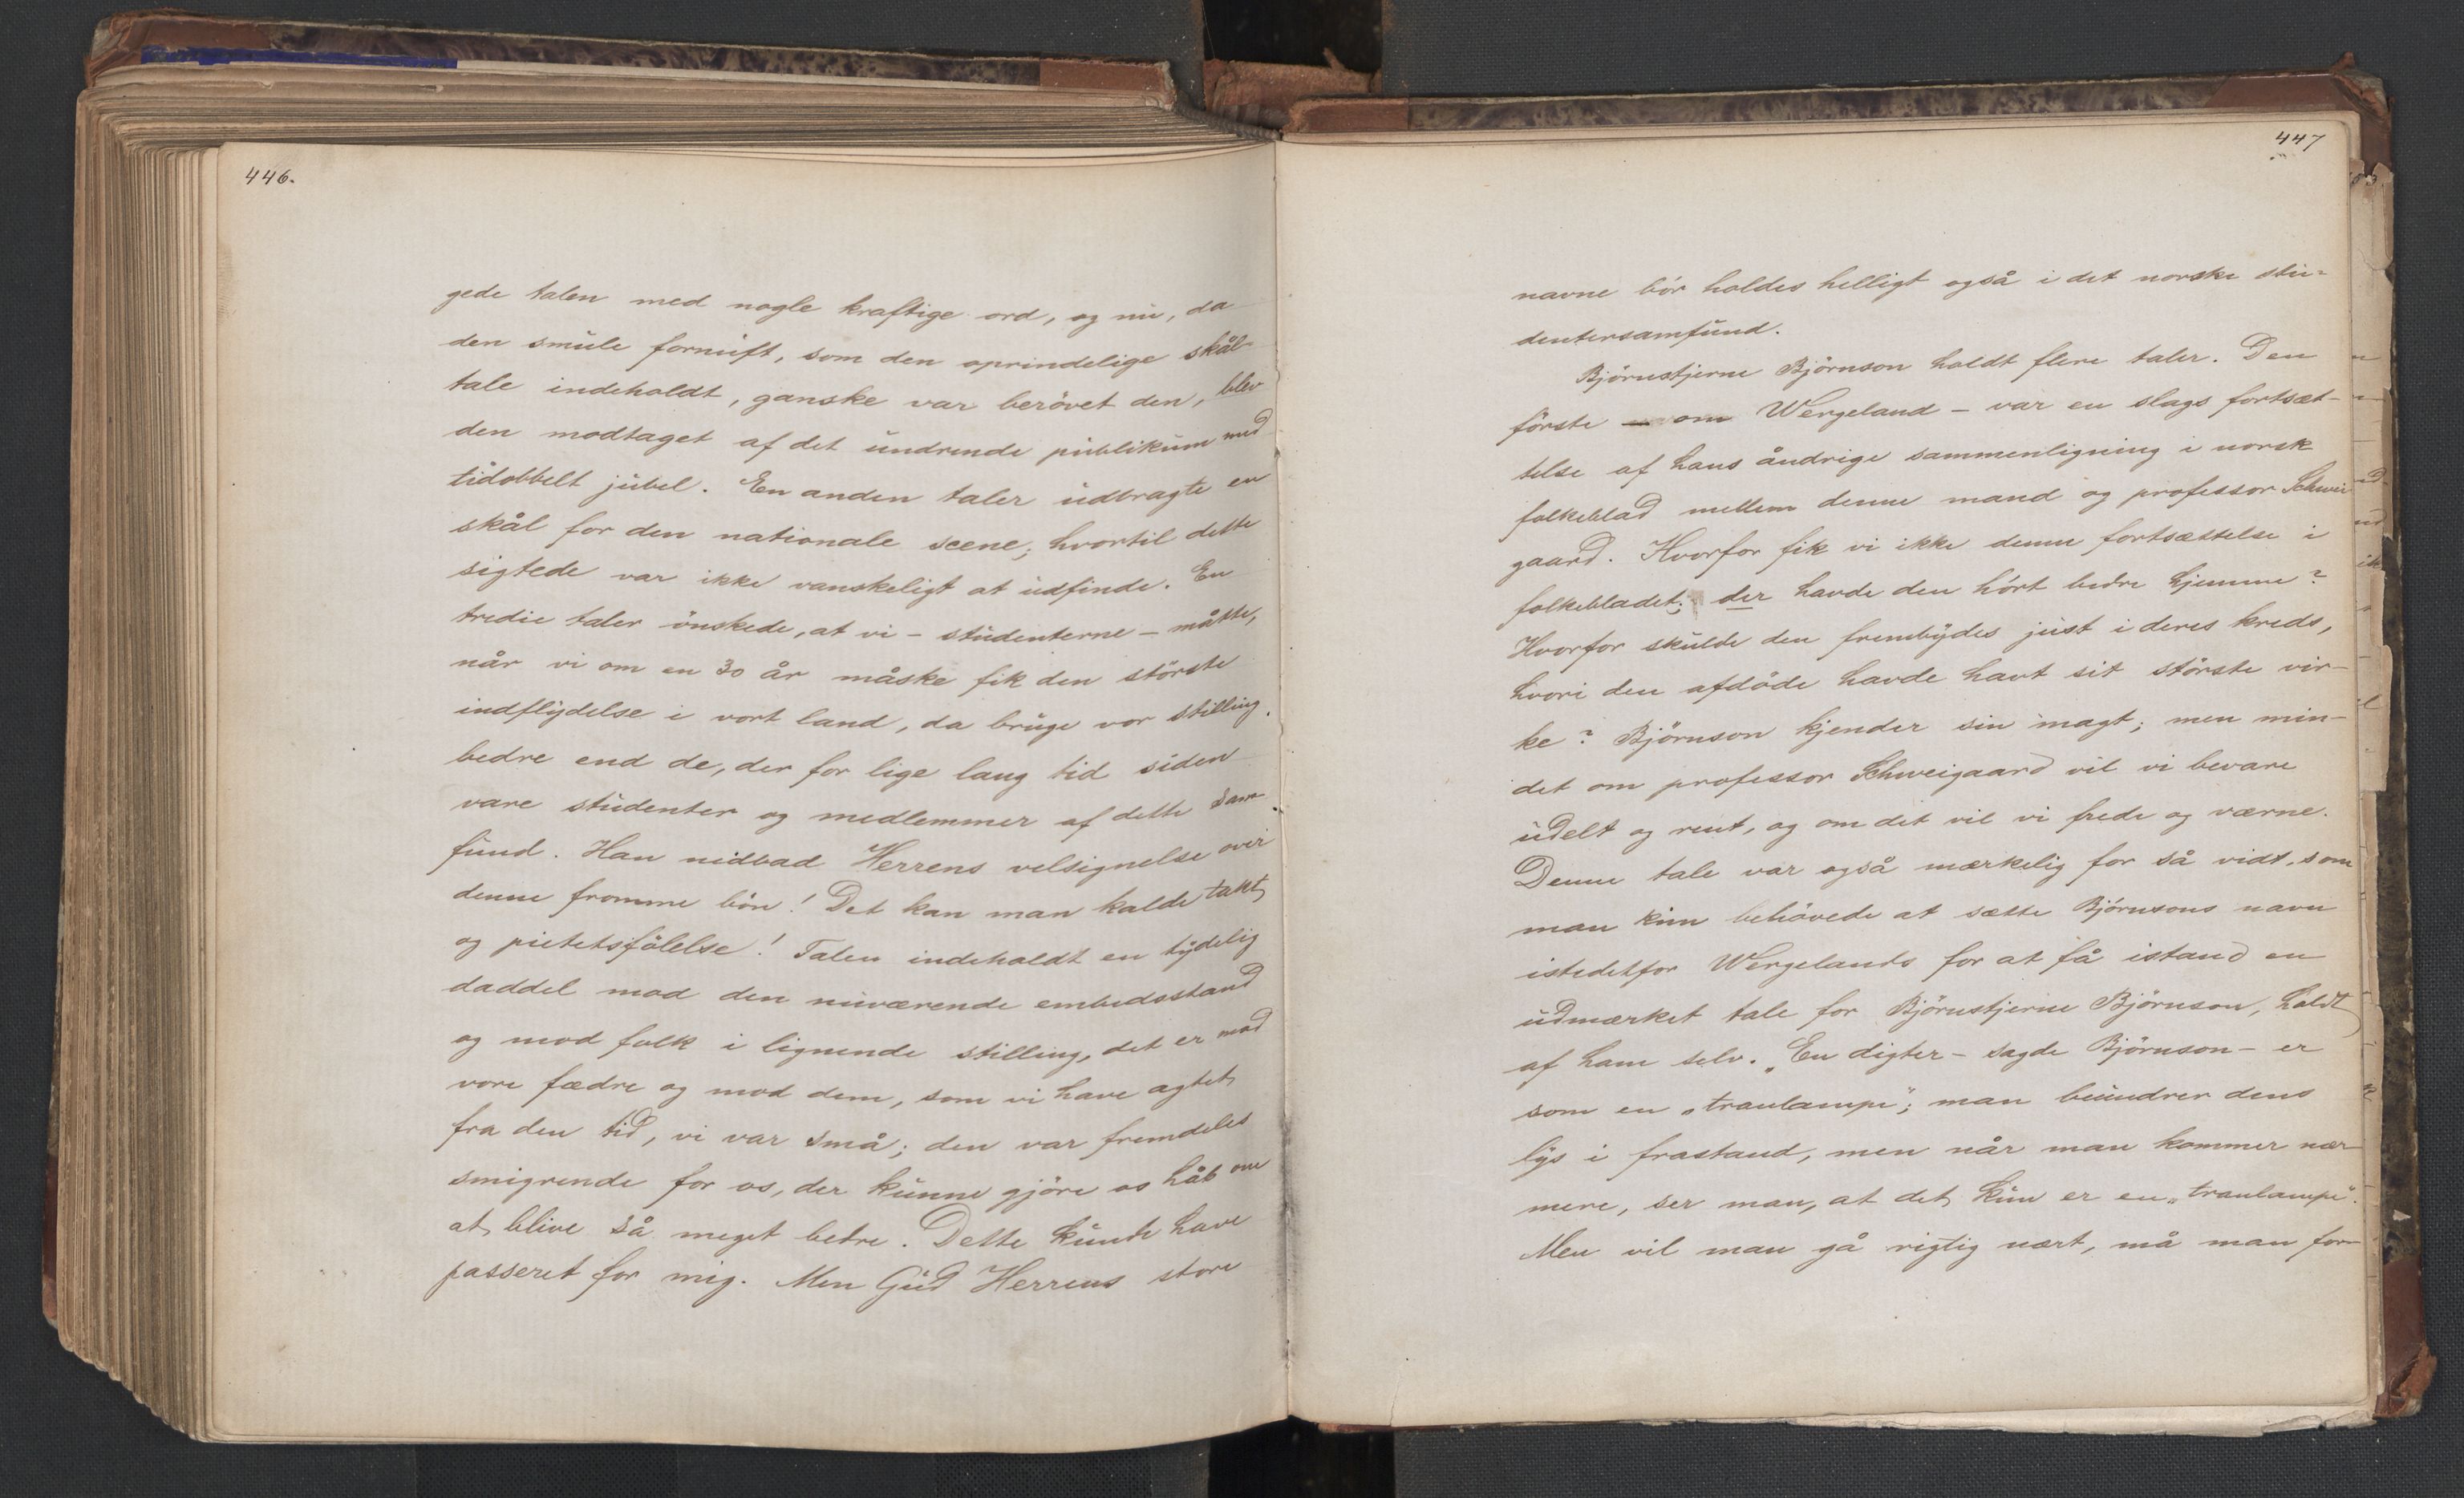 446.
gede talen med nogle kraftige ord, og nu, da
den smule fornuft, som den oprindelige skål-
tale indeholdt, ganske var berövet den, blev
den modtaget af det undrende publikum med
tidobbelt jubel. En anden taler udbragte en
skål for den nationale scene; hvortil dette
sigtede var ikke vanskeligt at udfinde. En
tredie taler önskede, at vi - studenterne - måtte,
når vi om en 30 år måske fik den störste
indflydelse i vort land, da bruge vor stilling
bedre end de, der for lige lang tid siden
vare studenter og medlemmer af dette sam
fund. Han nidbad Herrens velsignelse over
denne fromme bön! Det kan man kalde takt
og pietetsfölelse! Talen indeholdt en tydelig
daddel mod den nuværende embedsstand
og mod folk i lignende stilling, det er mod
vore fædre og mod dem, som vi have agtet
fra den tid, vi var små; den var fremdeles
smigrende for os, der kunne gjöre os håb om
at blive så meget bedre. Dette kunde have
passeret for mig. Men Gud Herrens store
447
navne bör holdes helligt også i det norske stu-
dentersamfund.
Björnstjerne Björnson holdt flere taler. Den
förste - om Wergeland - var en slags fortsæt-
telse af hans åndrige sammenligning i norsk
folkeblad mellem denne mand og professor Schwei
gaard. Hvorfor fik vi ikke denne fortsættelse i
folkebladet; der havde den hört bedre hjemme?
Hvorfor skulde den frembydes just i deres kreds,
hvori den afdöde havde havt sit störste vir-
ke? Björnson kjender sin magt; men min-
det om professor Schweigaard vil vi bevare
udelt og rent, og om det vil vi frede og værne.
Denne tale var også mærkelig for så vidt, som
man kun behövede at sætte Björnsons navn
istedetfor Wergelands for at få istand en
udmærket tale for Björnstjerne Björnson, holdt
af ham selv. „En digter - sagde Björnson - er
som en „tranlampe"; man beundrer dens
lys i frastand, men når man kommer nær
mere, ser man, at det kun er en „tranlampe".
Men vil man gå rigtig nært, må man for-